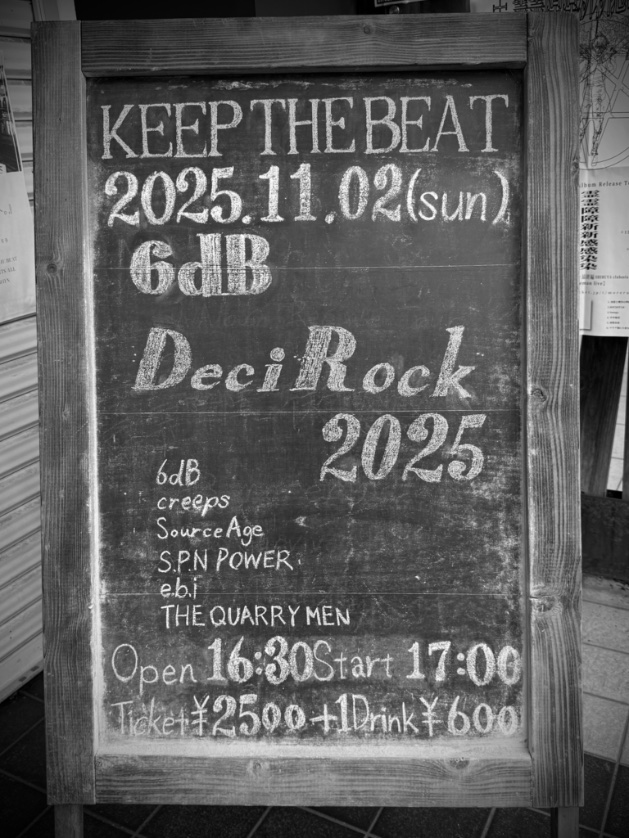 KEEP THE BEAT
2025.11.02(sun)
6dB
DeciRock
2025
6dB
creeps
Source Age
S.P.N POWER.
e.b.i
THE QUARRY MEN
Open 16:30 Start 17:00
Ticket ¥2500 +1Drink ¥600
Album Release T
霊霊障障新新感感染染